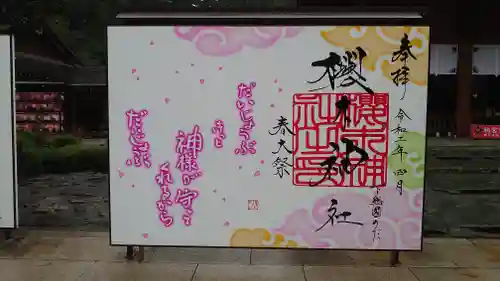 奉拝
令和二年 四月
櫻木神社
下総國のだ
春大祭
だいじょうぶ
きっと
神様が守って
くれるから
だいじょうぶ